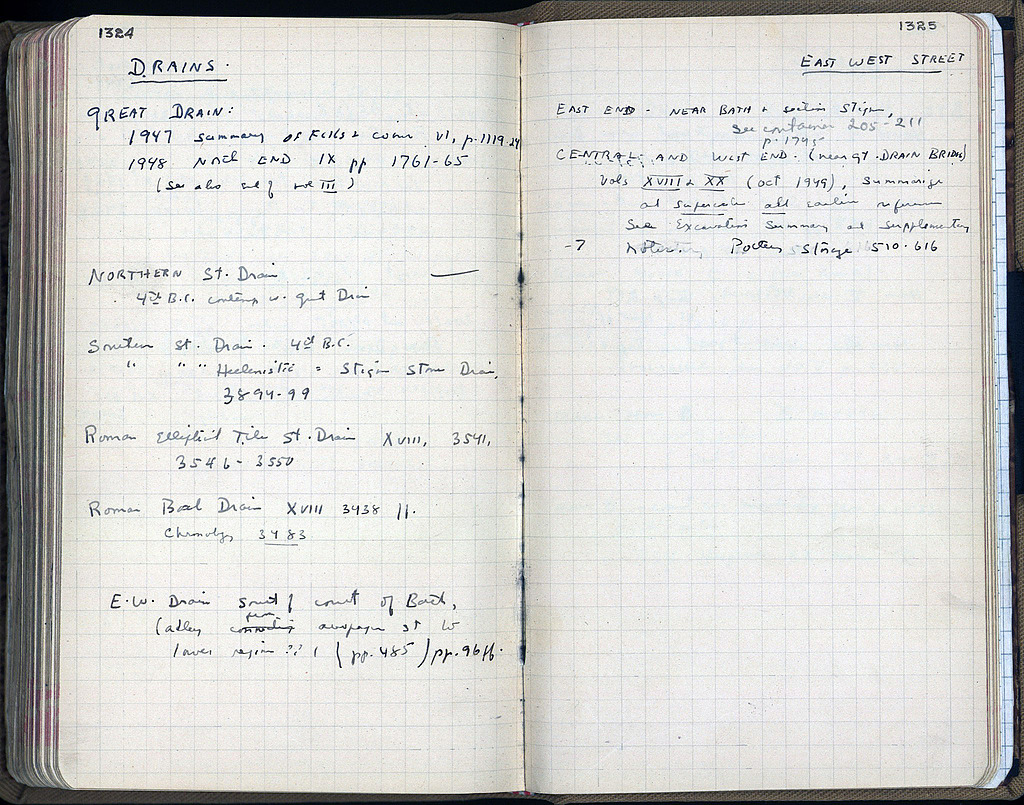 1324
DRAINS.
GREAT DRAIN:
1947 summary of Fills & coins VI, p. 1119-24
1948 North END IX pp 1761-65
(See also end of vol III)
NORTHERN St. Drain
4th B.C. contemp w. great Drain
Southern St. Drain. 4th B.C.
" " " Hellenistic = Stigin Stone Drain,
3894-99
Roman Elliptical Tile St. Drain XVIII, 3541,
3546-3550
Roman Bath Drain XVIII 3438 ff.
Chronology 3483
E.W. Drain South of court of Bath,
(alley from st W
lower region ?? ( pp. 485 ) pp. 96 ff.
1325
EAST WEST STREET
EAST END - NEAR BATH & section Stigin,
See container 205-211
p. 1745
CENTRAL AND WEST END. (near GT. DRAIN BRIDGE)
Vols XVIII & XX (Oct 1949), Summarize
and supercede all earlier references
See Excavation Summary and supplementary
-7 Pottery Storage 510-616